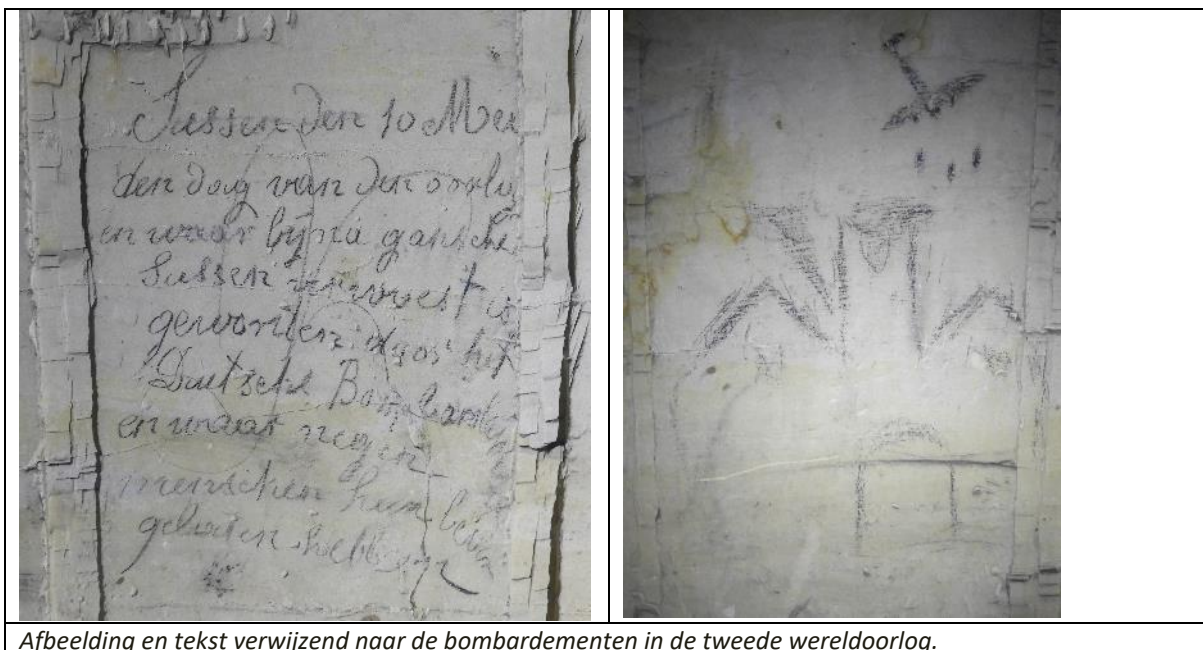 Sussen den 10 Mei
den dag van den oorlo
en waar bijna gansche
Sussen verwoest is
geworden door het
Duitsche Bombarde
en waar negen
menschen hun leven
gelaten hebben
Afbeelding en tekst verwijzend naar de bombardementen in de tweede wereldoorlog.